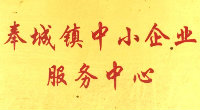 奉城镇中小企业
服务中心